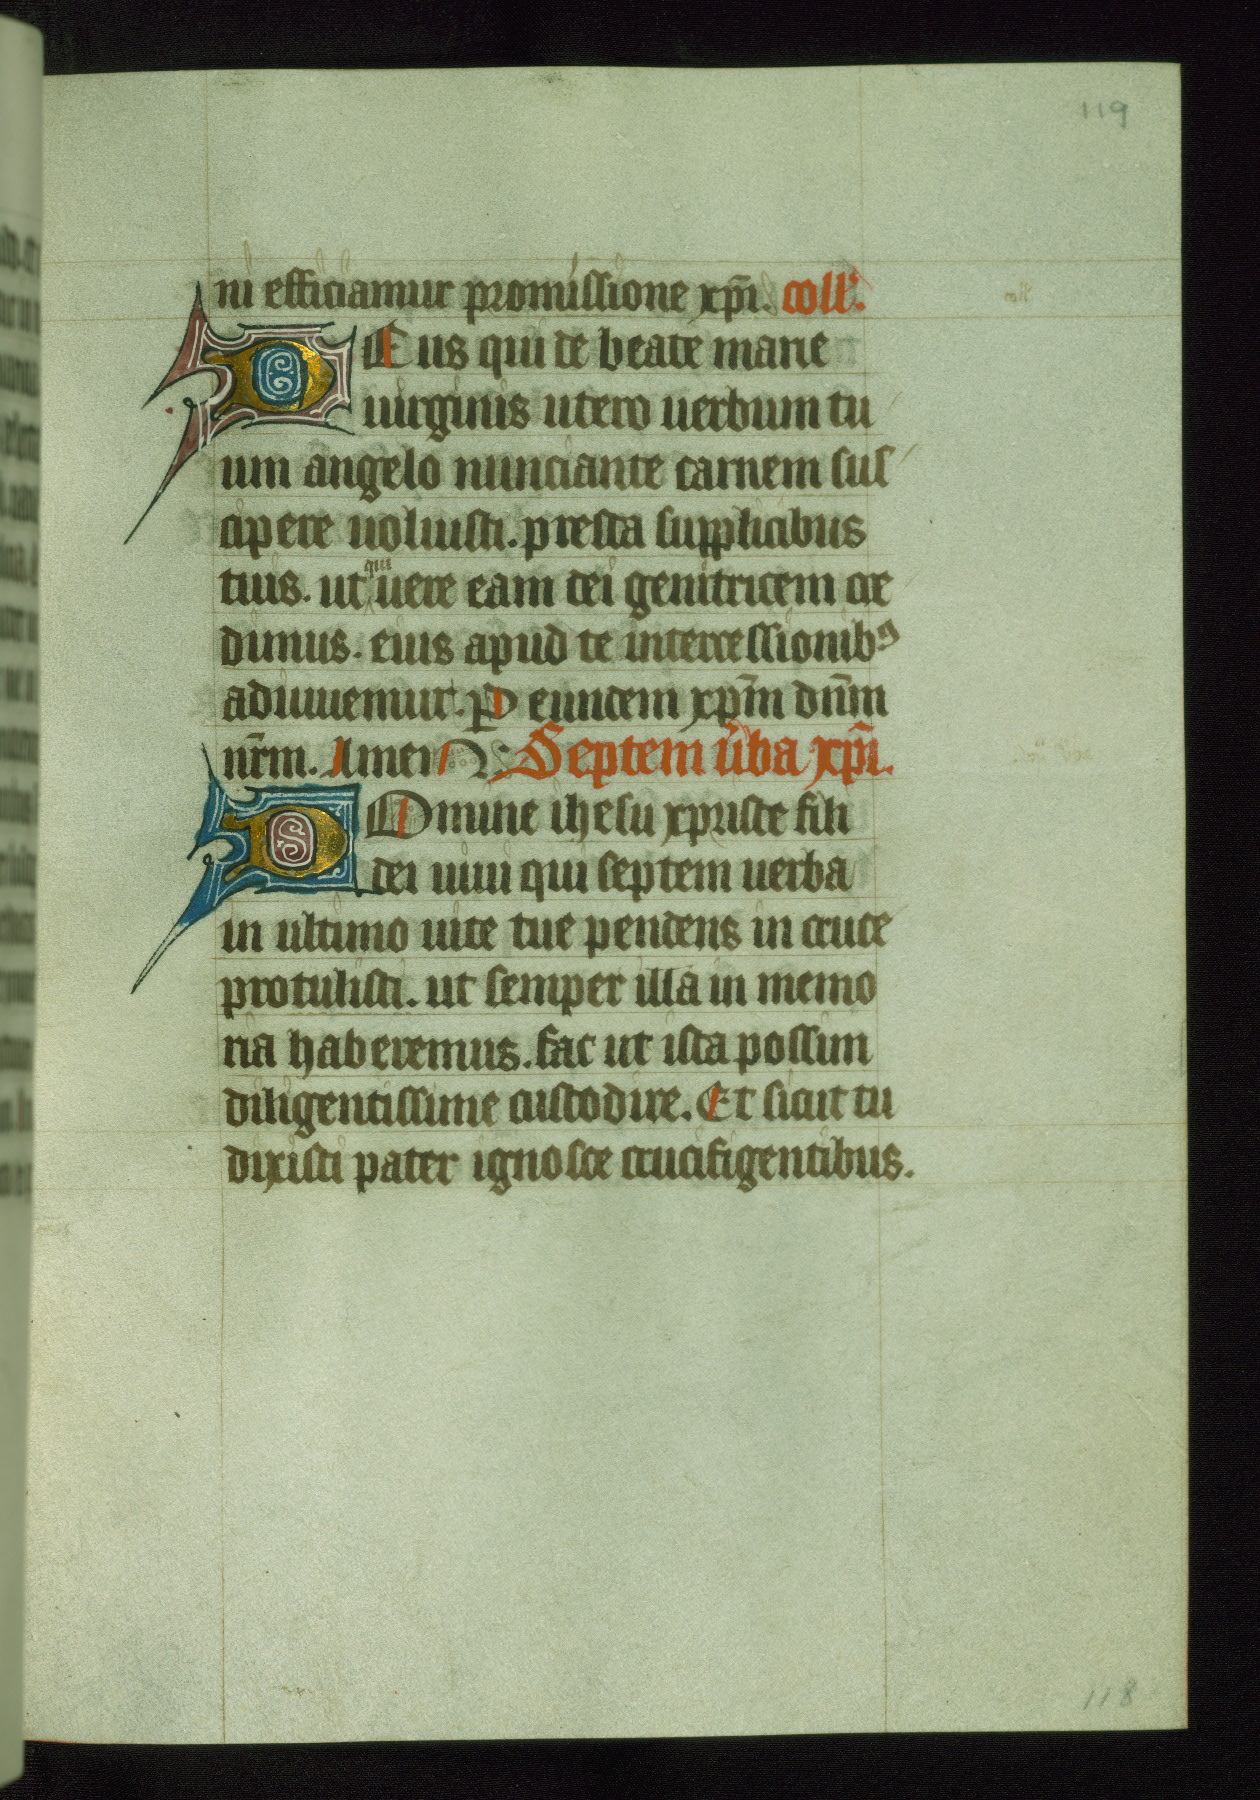 119
ni efficiamur promissione xp̃i. coll'.
DEus qui de beate marie
uirginis utero uerbum tu
um angelo nunciante carnem sus
cipere uoluisti. presta supplicibus
tuis. ut qui uere eam dei genitricem cre
dimus. eius apud te intercessionibꝰ
adiuuemur. ꝑ eundem xp̃m dñm
nr̃m. Amen. Septem ũba xp̃i.
DOmine ihesu xpriste fili
dei uiui qui septem uerba
in ultimo uite tue pendens in cruce
protulisti. ut semper illa in memo
ria haberemus. fac ut ista possim
diligentissime custodire. Et sicut tu
dixisti pater ignosce crucifigentibus.
118